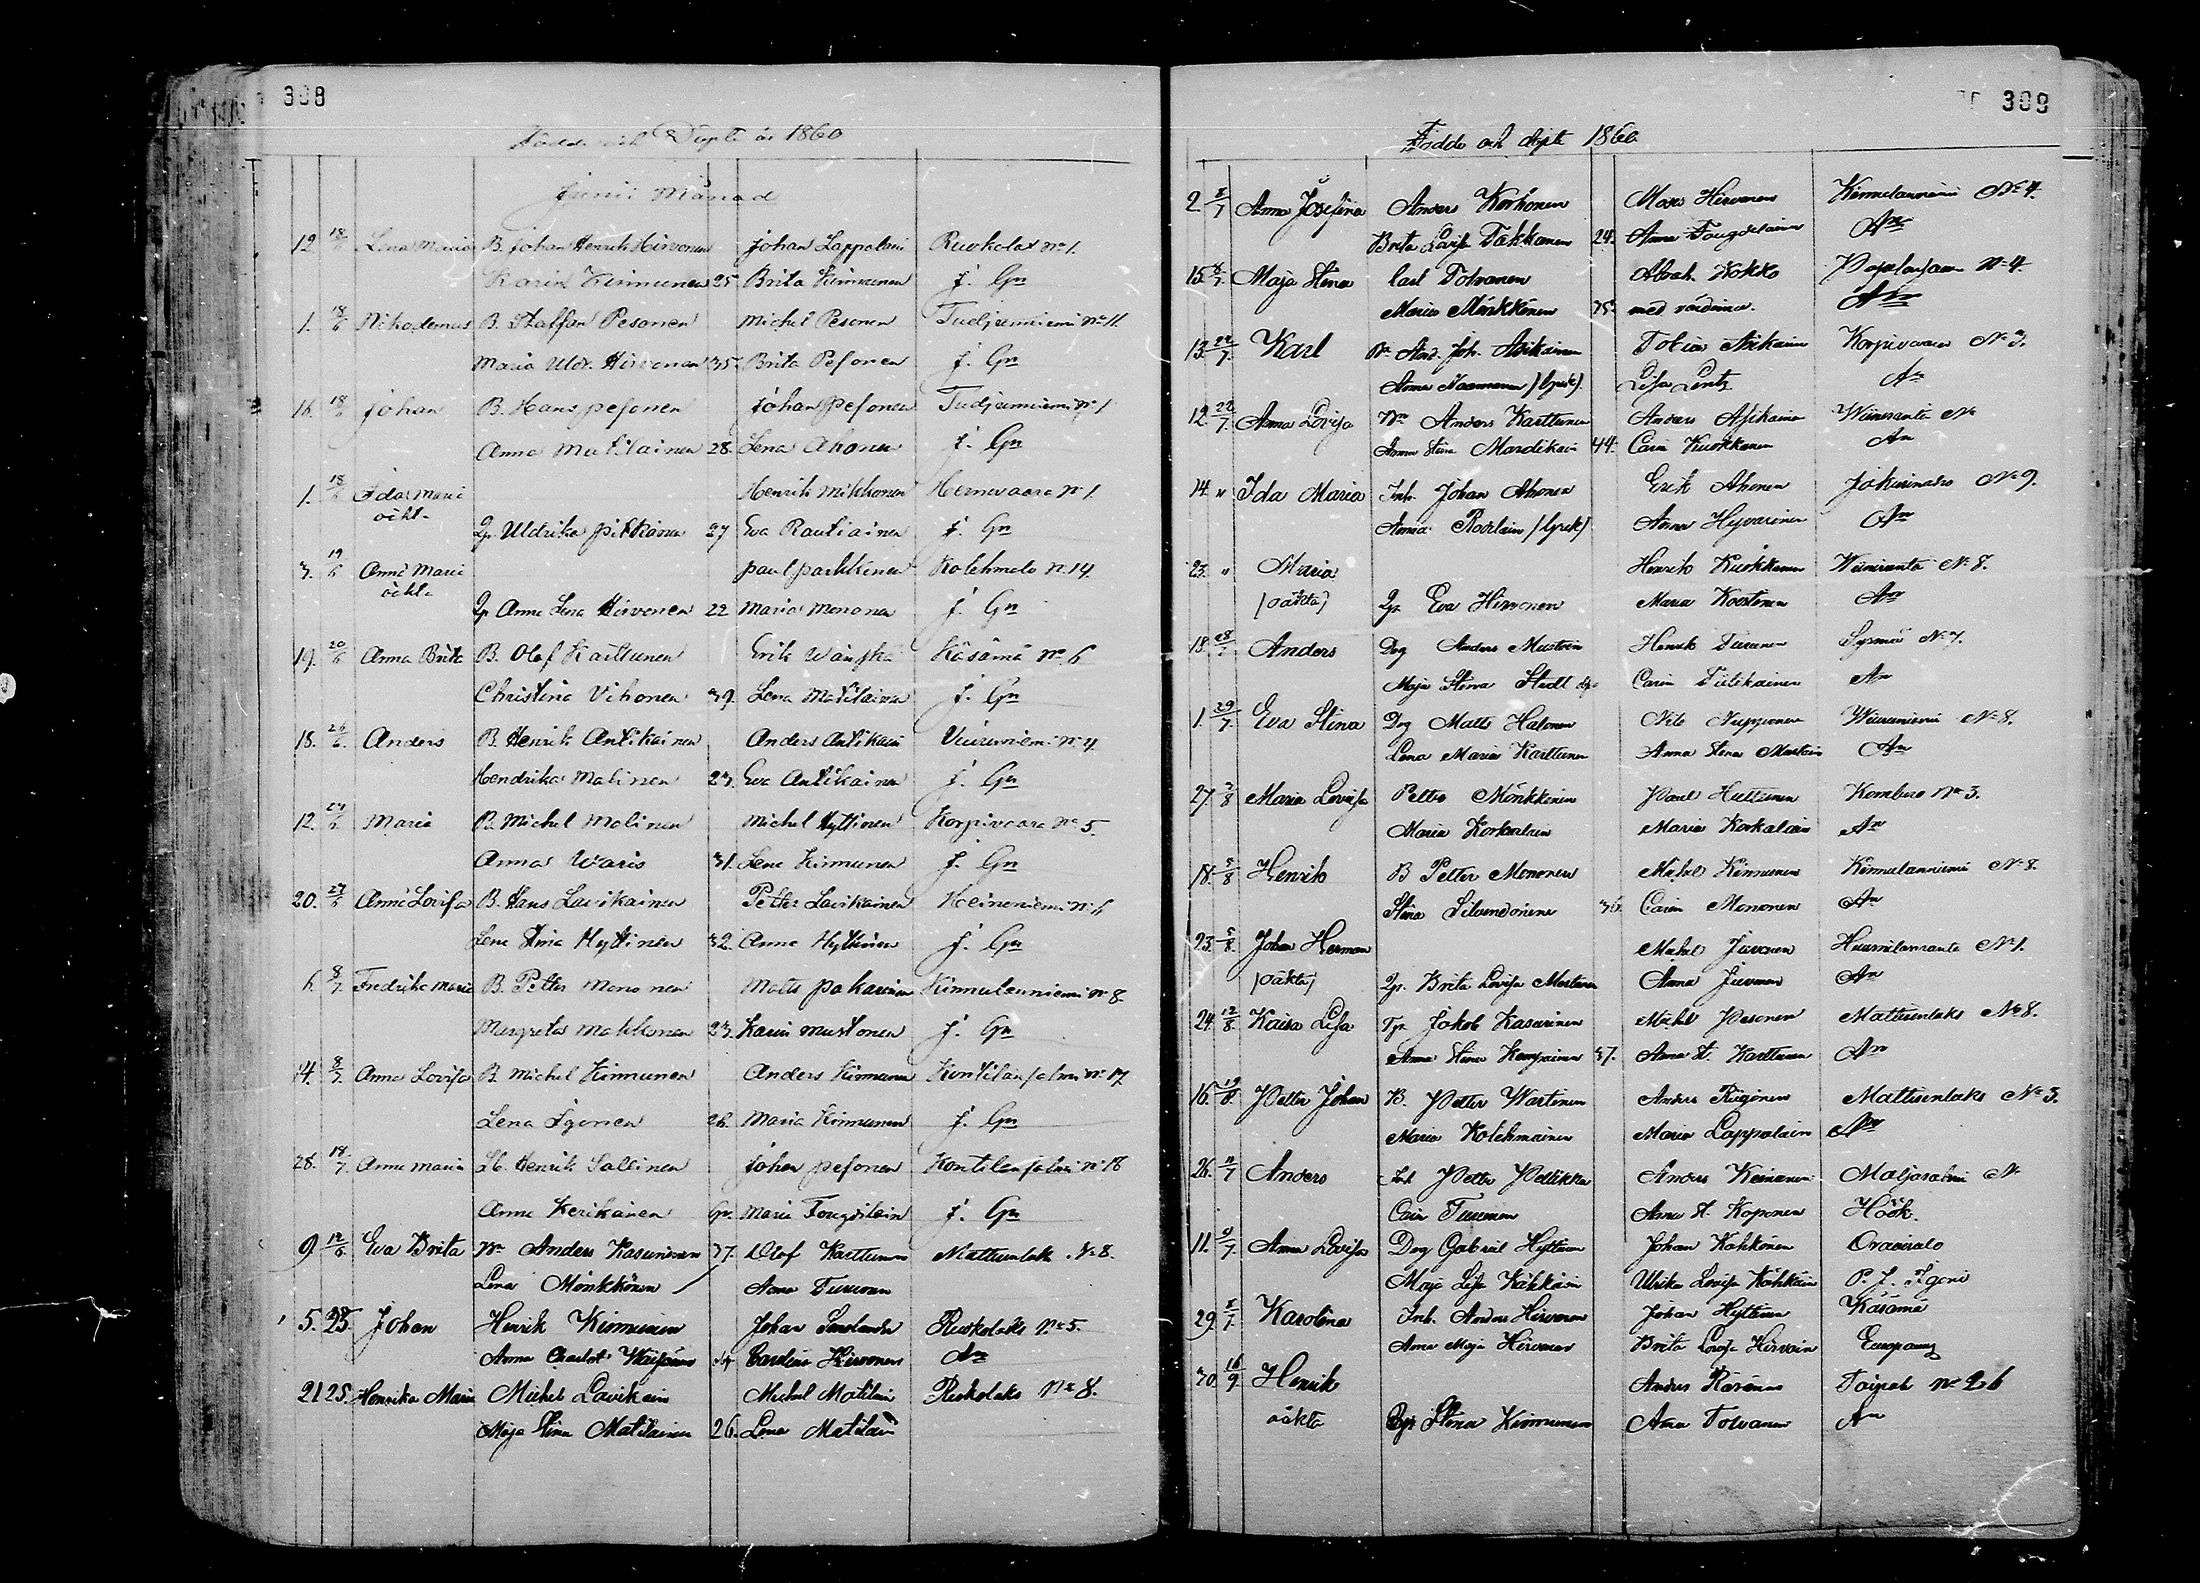 308
Födde och Döpte år 1860
Junii Månad
19 18/6 Lena Maria B. Johan Henrik Hirvonen Johan Lappalain Ruokolax No 1.
Karin Kinnunen 25 Brita Kinnunen f. Gn
1. 18/6 Nikodemus B. Staffan Pesonen Michel Pesonen Tudjunniemi No 11.
Maria Uldr. Hirvonen 35. Brita Pesonen f. Gn
16 18/6 Johan B. Hans pesonen Johan Pesonen Tudjunniemi No 1
Anna Matilainen 28. Lena Ahonen f. Gn
1. 18/6 Ida Mari Henrik Mikkonen Hernevaara No 1.
oäkt. Qp Uldrika pitkänen 27 Eva Rautiainen f. Gn
3. 19/6 Anna Mari paul parkkinen Kolehmola No 14.
oäkt. Qp Anna Lena Hirvonen 22 Maria Mononen f. Gn
19. 20/6 Anna Brita B. Olof Karttunen Erik Wänskä Käsämä No 6
Christina Vihonen 39. Lena Matilainen f. Gn
18. 26/6. Anders B. Henrik Antikainen Anders Antikain Viiriniemi No 4
Hendrika Malinen 23. Eva Antikainen f. Gn
12. 27/6 Maria B. Michel Malinen Michel Hyttinen Korpivaara No 5.
Anna Waris 31. Lena Kinnunen f. Gn
20. 27/6 Anna Lovisa B. Hans Lavikainen Petter Lavikainen Heineniemi No 6
Lena Stina Hyttinen 32. Anna Hyttinen f. Gn
6 8/7. Fredrika Maria B. Petter Mononen Matts pakarinen Kinnulanniemi No 8
Margreta Makkonen 23. Karin Mustonen f. Gn
14. 8/7. Anna Lovisa B. Michel Kinnunen Anders Kinnunen Kontilansalmi No 17
Lena Igonen 26. Maria Kinnunen f. Gn
28. 18/7 Anna Maria Henrik Sallinen Johan pesonen Kontilansalmi No 18
Anna Kerikainen Gr. Maria Fougdtlein f. Gn
9. 12/6 Eva Brita Anders Kasurinen 37. Olof Karttunen Mattisenlaks No 8.
Lena Mönkkönen Anna Turunen
5. 25 Johan Henrik Kinnunen Johan Ruokolaks No 5.
Anna Charlot Carolina Hirvonen An
21 25. Henrika Maria Michel Lavikain Michel Matilain Ruokolaks No 8.
Maja Stina Matilainen 26. Lena Matilain
309
Födde och döpte 1860
2. 8/7 Anna Josefina Anders Korhonen Moses Hirvonen Kinnulanniemi No 4.
Brita Lovisa Takkanen 24. Anna Fougdelainen An
15. 8/7. Maja Stina Carl Tolvanen Abrah. Kokko No 4.
Maria Mönkkönen 35. med värdinna. An
13. 22/7. Karl And. Joh. Asikainen Tobias Asikainen Korpivaara No 3.
Anna Naumanen (Grek) Lisa Lentz An
12. 22/7. Anna Lovisa Anders Karttunen Anders Asikainen Wiiniranta No
Anna Stina Mardikain 44. Carin Kuokkanen An
14. " Ida Maria Inh. Johan Ahonen Erik Ahonen Jakarinaho No 9.
Anna (Grek) Anna Hyvärinen An
23. " Maria Henrik Kuokkanen Wiiniranta No 8.
(oäkta) Qp. Eva Hirvonen Maria Kortinen An
18. 28/7 Anders Drg Anders Mustoin Henrik Turunen Sysmä No 7.
Maja Stina Carin Tiilikainen An
1. 29/7. Eva Stina Drg Matts Halonen Nils Nupponen Wiiriniemi No 8.
Lena Maria Karttunen Anna Stina Mustoin An
27. 2/8 Maria Lovisa Petter Mönkkönen Paul Huttunen Kombero No 3.
Maria Korkalain Maria Korkalain An
18. 5/8 Henrik B Petter Mononen Michel Kinnunen Kinnulanniemi No 8.
Stina Silvendoinen 36. Carin Mononen An
23. 5/8. Johan Herman Michel Juvonen No 1.
(oäkta) Qp. Brita Lovisa Mustonen Anna Juvonen An
24. 12/8 Kaisa Lisa Jakob Kasurinen Michel Pesonen Mattisenlaks No 8.
Anna Stina Kemppainen 37. Anna St. Karttunen An
16. 19/8. Petter Johan B. Petter Wartinen Anders Riigonen Mattisenlaks No 3.
Maria Kolehmainen Maria Lappalain An
26. /7 Anders Inh Petter Pellikka Anders Keinanen Maljasalmi No
Carin Turunen Anna St. Koponen Höök.
11. /7 Anna Lovisa Drg Gabriel Hyttinen Johan Kahkönen Oravisalo
Maja Lisa Kähköin Ulrika Lovisa Kähköin P. J. Igoni
29. 8/7. Karolina Inh. Anders Hirvonen Johan Hyttinen Käsämä
Anna Maja Hirvonen Brita Lovisa Hirvoin Europaeus
30. 16/9 Henrik Anders Räsänen Taipale No 26
oäkta Stina Kinnunen Anna Tolvanen An